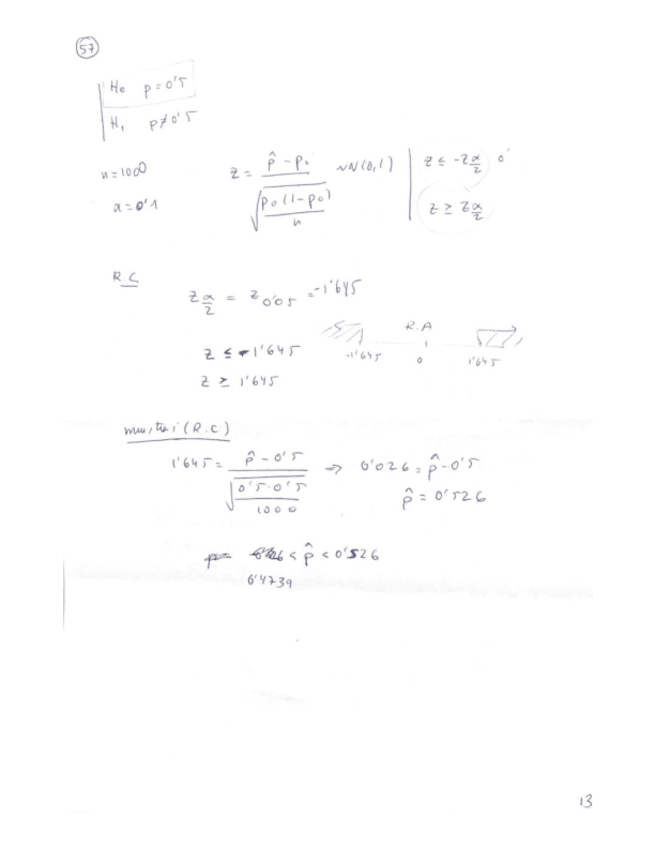 57
H₀ p = 0'5
H₁ p ≠ 0'5
n = 1000
α = 0'1
z = (p̂ - p₀) / √(p₀(1-p₀)/n) ~ N(0,1)
z ≤ -z α/2 o'
z ≥ z α/2
R.C
z α/2 = z 0'05 = -1'645
z ≤ -1'645
z ≥ 1'645
R.A
-1'645 0 1'645
(R.C)
1'645 = (p̂ - 0'5) / √(0'5·0'5/1000) → 0'026 = p̂ - 0'5
p̂ = 0'526
< p̂ < 0'526
0'4739
13